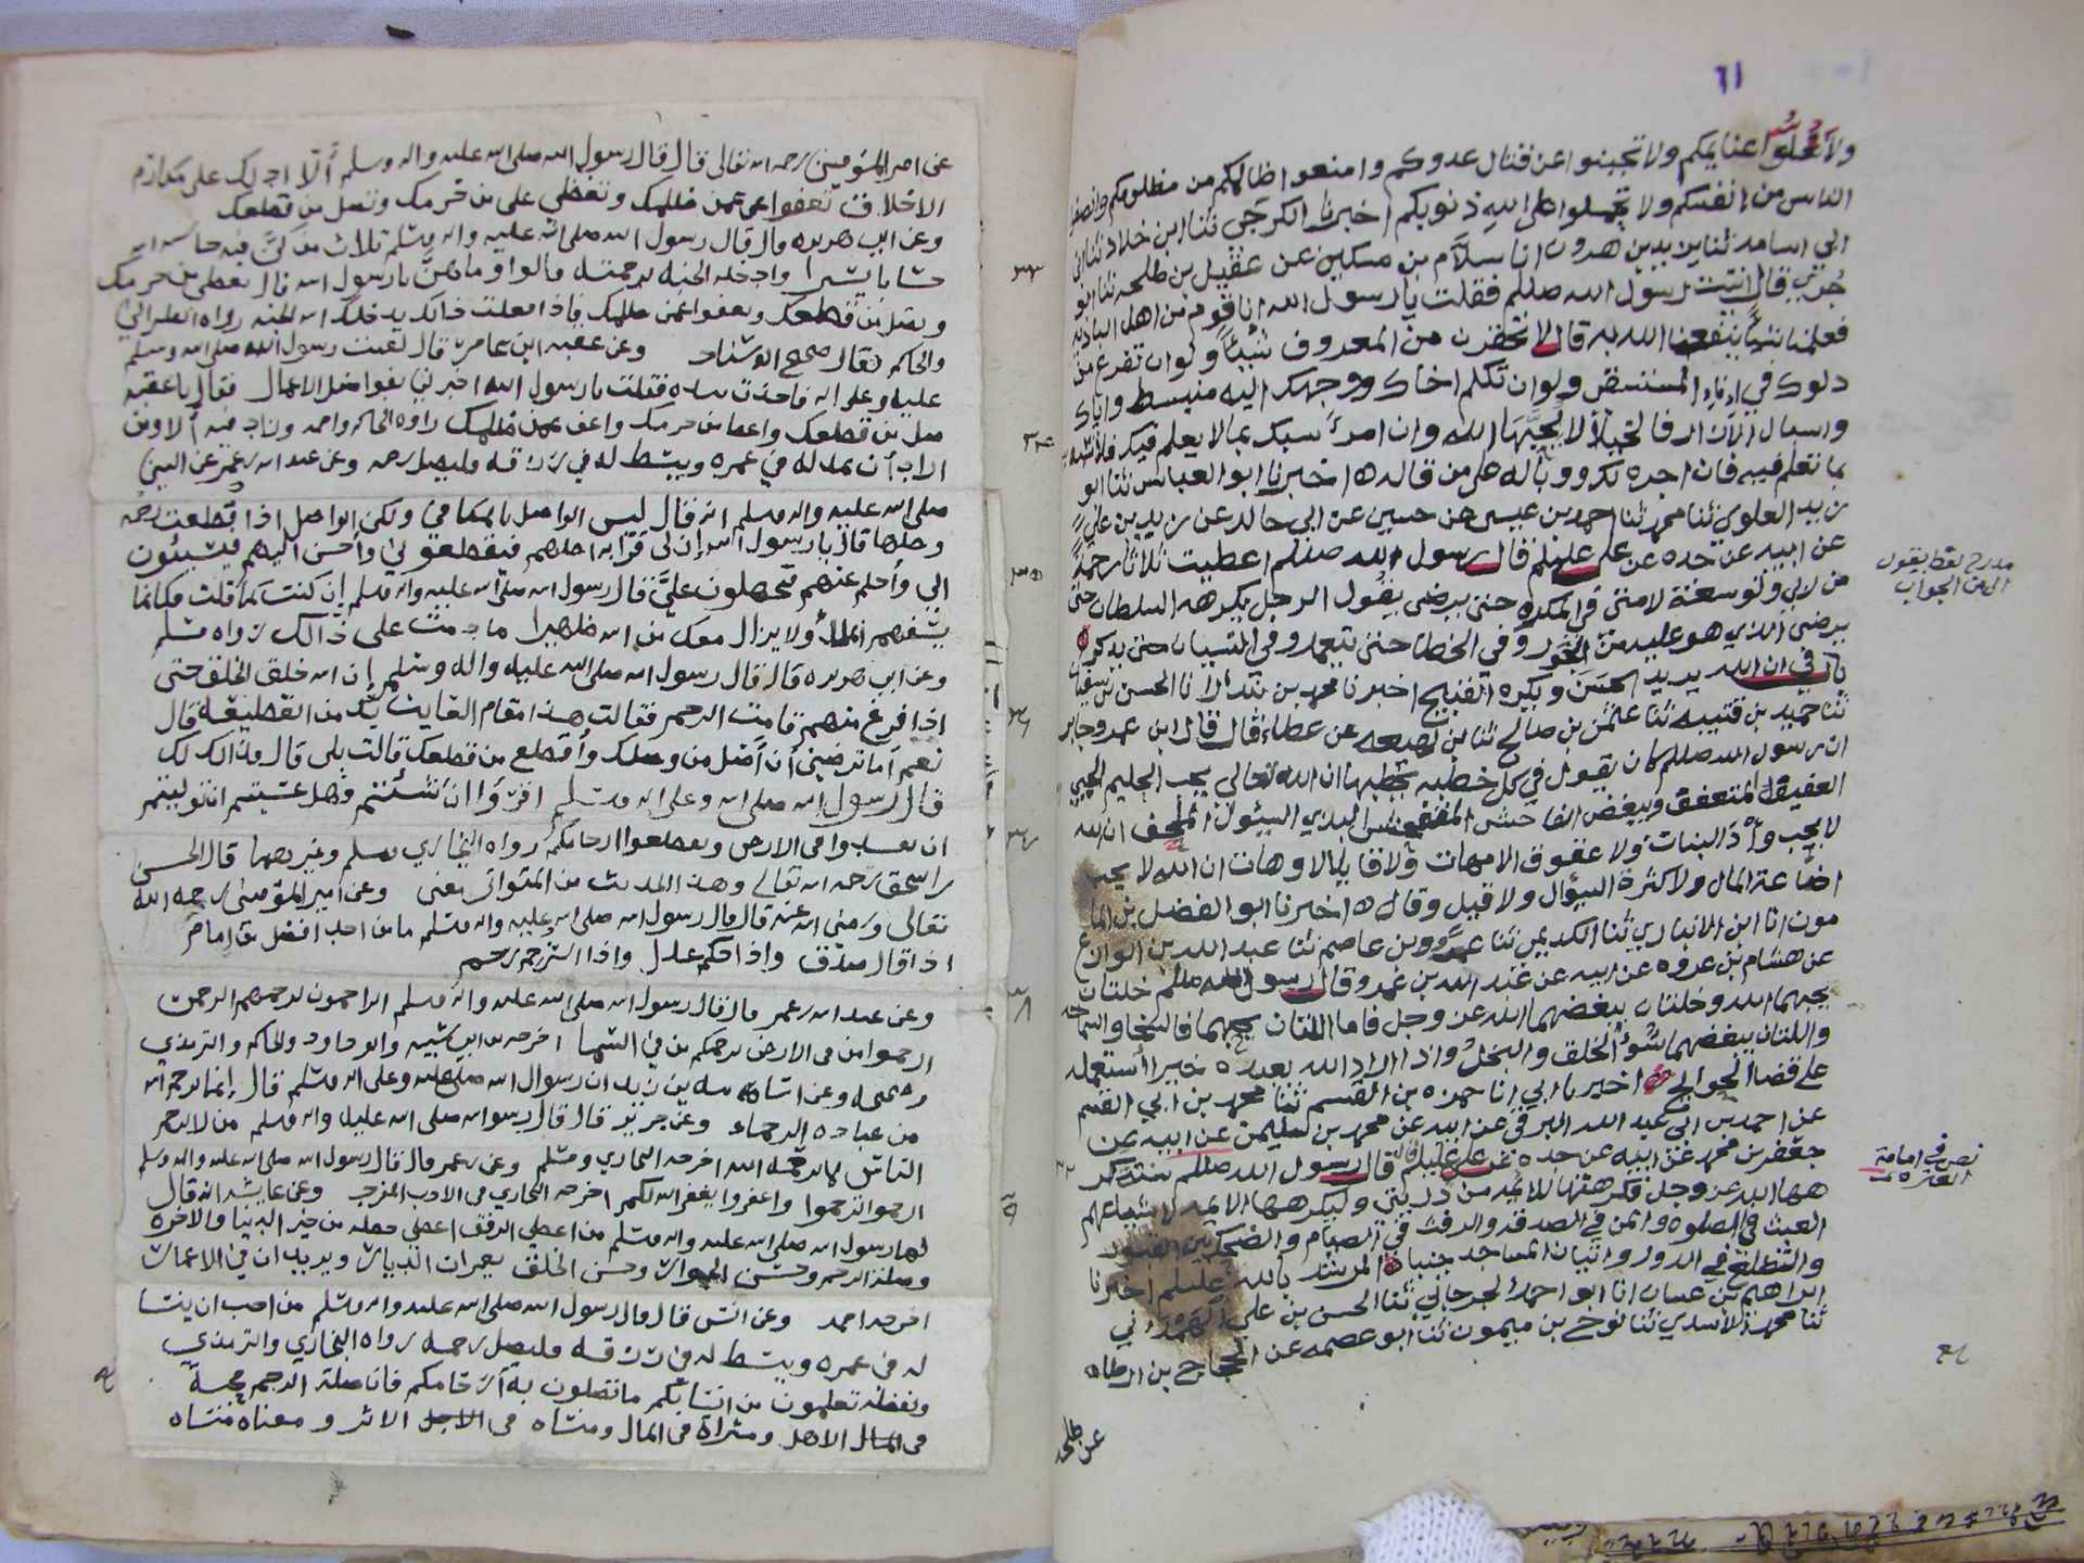 ٦١
ولا تغلوا غنائمكم ولا تجبنوا عن قتال عدوكم وامنعوا ظالمكم من مظلومكم وانصفوا
الناس من انفسكم ولا تحملوا على الله ذنوبكم اخبرنا الكرجي ثنا ابن خلاد ثنا ابن
ابي اسامه ثنا يزيد بن هرون انا سلام بن مسكين عن عقيل بن طلحه ثنا ابو
جُريّ قال اتيت رسول الله صللم فقلت يا رسول الله انا قوم من اهل الباديه
فعلمنا شيئاً ينفعنا الله به قال لا تحقرن من المعروف شيئاً ولو ان تفرغ من
دلوك في اناء المستسقي ولو ان تكلم اخاك ووجهك اليه منبسط واياك
واسبال الازار فالخيلاء لا يحبّها الله وان امرئ سبك بما لا يعلم فيك فلا تسبه
بما تعلم فيه فان اجره لك ووباله على من قاله ه اخبرنا ابو العباس ثنا ابو
زيد العلوي ثنا محمد ثنا احمد بن عيسى عن حسين عن ابي خالد عن زيد بن علي
عن ابيه عن جده عن علي عليلم قال رسول الله صللم اعطيت ثلاثا رحمة
من ربي وتوسعة لامتي في المكره حتى يرضى يقول الرجل يكرهه السلطان حتى
يرضى الذي هو عليه من الجور وفي الخطا حتى يتعمد وفي النسيان حتى يذكر ه
باب في ان الله يريد الحسن ويكره القبيح اخبرنا محمد بن بندار انا الحسن بن سفيان
ثنا حميد بن قتيبه ثنا عثمن بن صالح ثنا بن لهيعه عن عطاء قال قال ابن عمر وجابر
ان رسول الله صللم كان يقول في كل خطبه يخطبها ان الله تعالى يحب الحليم الحيي
العفيف المتعفف ويبغض الفاحش البذي السئول الملحف ان الله
لا يحب وأد البنات ولا عقوق الامهات ولا قايلا لا وهات ان الله لا يحب
اضاعة المال ولا كثرة السؤال ولا قيل وقال ه اخبرنا ابو الفضل بن الما
مون انا ابن الانباري ثنا الكديمي ثنا عمرو بن عاصم ثنا عبد الله بن الوازع
عن هشام بن عروه عن ابيه عن عبد الله بن عمرو قال رسول الله صللم خلتان
يحبهما الله وخلتان يبغضهما الله عز وجل فاما اللتان يحبهما فالسخا والسماحه
واللتان يبغضهما سُوء الخلق والبخل واذا اراد الله بعبده خيرا استعمله
على قضا الحوائج ه اخبرنا ابي انا حمزه بن القسم ثنا محمد بن ابي القسم
عن احمد بن ابي عبد الله البرقي عن ابيه عن محمد بن سليمن عن ابيه عن
جعفر بن محمد عن ابيه عن جده عن علي عليلم قال رسول الله صللم ستة كر
هها الله عز وجل فكرهتها للائمه من ذريتي وليكرهها الائمه لاتباعهم
العبث في الصلوه والمن في الصدقه والرفث في الصيام والضحك بين القبور
والتطلع في الدور واتيان المساجد جنبا ه المرشد بالله عليلم اخبرنا
ابراهيم بن غسان انا ابو احمد الجرجاني ثنا الحسن بن علي
ثنا محمد الاسدي ثنا نوح بن ميمون ثنا ابو عصمه عن الحجاج بن ارطاه
عن طلحه
مدرج لفظ يقول
الى من الجواب
نص في امامة
العترة
عن امير المؤمنين رحمه الله تعالى قال قال رسول الله صلى الله عليه واله وسلم ألا ادلك على مكارم
الاخلاق تعفوا عمن ظلمك وتعطي من حرمك وتصل من قطعك
وعن ابي هريره قال قال رسول الله صلى الله عليه واله وسلم ثلاث من كن فيه حاسبه الله
حسابا يسيرا وادخله الجنه برحمته قالوا وما هن يا رسول الله قال تعطي من حرمك
وتصل من قطعك وتعفوا عمن ظلمك فاذا فعلت ذلك يدخلك الله الجنه رواه الطبراني
والحاكم وقال صحيح الاسناد وعن عقبه ابن عامر قال لقيت رسول الله صلى الله وسلم
عليه وعلى اله فاخذت بيده فقلت يا رسول الله اخبرني بفواضل الاعمال فقال يا عقبه
صل من قطعك واعط من حرمك واعف عمن ظلمك رواه الحاكم واحمد وزاد فيه ألا ومن
اراد أن يمد له في عمره ويبسط له في رزقه فليصل رحمه وعن عبد الله بن عمر عن النبي
صلى الله عليه واله وسلم انه قال ليس الواصل بالمكافي ولكن الواصل اذا قطعت رحمه
وصلها قال يا رسول الله إن لي قرابه اصلهم فيقطعوني وأحسن اليهم فيسيئون
الي وأحلم عنهم فيجهلون عليّ فقال رسول الله صلى الله عليه واله وسلم إن كنت كما قلت فكانما
تسفهم المل ولا يزال معك من الله ظهيرا ما دمت على ذالك رواه مسلم
وعن ابي هريره قال قال رسول الله صلى الله عليه واله وسلم إن الله خلق الخلق حتى
اذا فرغ منهم قامت الرحم فقالت هذا مقام العايذ بك من القطيعه قال
نعم أما ترضين أن أصل من وصلك وأقطع من قطعك قالت بلى قال فذالك لك
قال رسول الله صلى الله وعلى اله وسلم اقرؤا ان شئتم فهل عسيتم ان توليتم
ان تفسدوا في الارض وتقطعوا ارحامكم رواه البخاري ومسلم وغيرهما قال الحسن
بن اسحق رحمه الله تعالى وهذا الحديث من المتواتر معنى وعن امير المؤمنين رحمه الله
تعالى ورضي الله عنه قال قال رسول الله صلى الله عليه واله وسلم ما من احد افضل من امام
اذا قال صدق واذا حكم عدل واذا استرحم رحم
وعن عبد الله بن عمر قال قال رسول الله صلى الله عليه واله وسلم الراحمون يرحمهم الرحمن
ارحموا من في الارض يرحمكم من في السما اخرجه بن ابي شيبه وابو داود والحاكم والترمذي
وصححه وعن اسامة بن زيد ان رسوال الله صلى الله عليه وعلى اله وسلم قال إنما يرحم الله
من عباده الرحماء وعن جرير قال قال رسول الله صلى الله عليه واله وسلم من لا يرحم
الناس لا يرحمه الله اخرجه البخاري ومسلم وعن بن عمر قال قال رسول الله صلى الله عليه واله وسلم
ارحموا ترحموا واغفروا يغفر الله لكم اخرجه البخاري في الادب المفرد وعن عايشه انه قال
لها رسول الله صلى الله عليه واله وسلم من اعطي الرفق اعطي حظه من خير الدنيا والاخره
وصلة الرحم وحسن الجوار وحسن الخلق يعمران الديار ويزيدان في الاعمار
اخرجه احمد وعن انس قال قال رسول الله صلى الله عليه واله وسلم من احب ان ينسا
له في عمره ويبسط له في رزقه فليصل رحمه رواه البخاري والترمذي
ولفظه تعلمون من انسابكم ما تصلون به أرحامكم فان صلة الرحم محبة
في الاهل ومثراة في المال ومنساه في الاجل الاثر ومعناه منساه